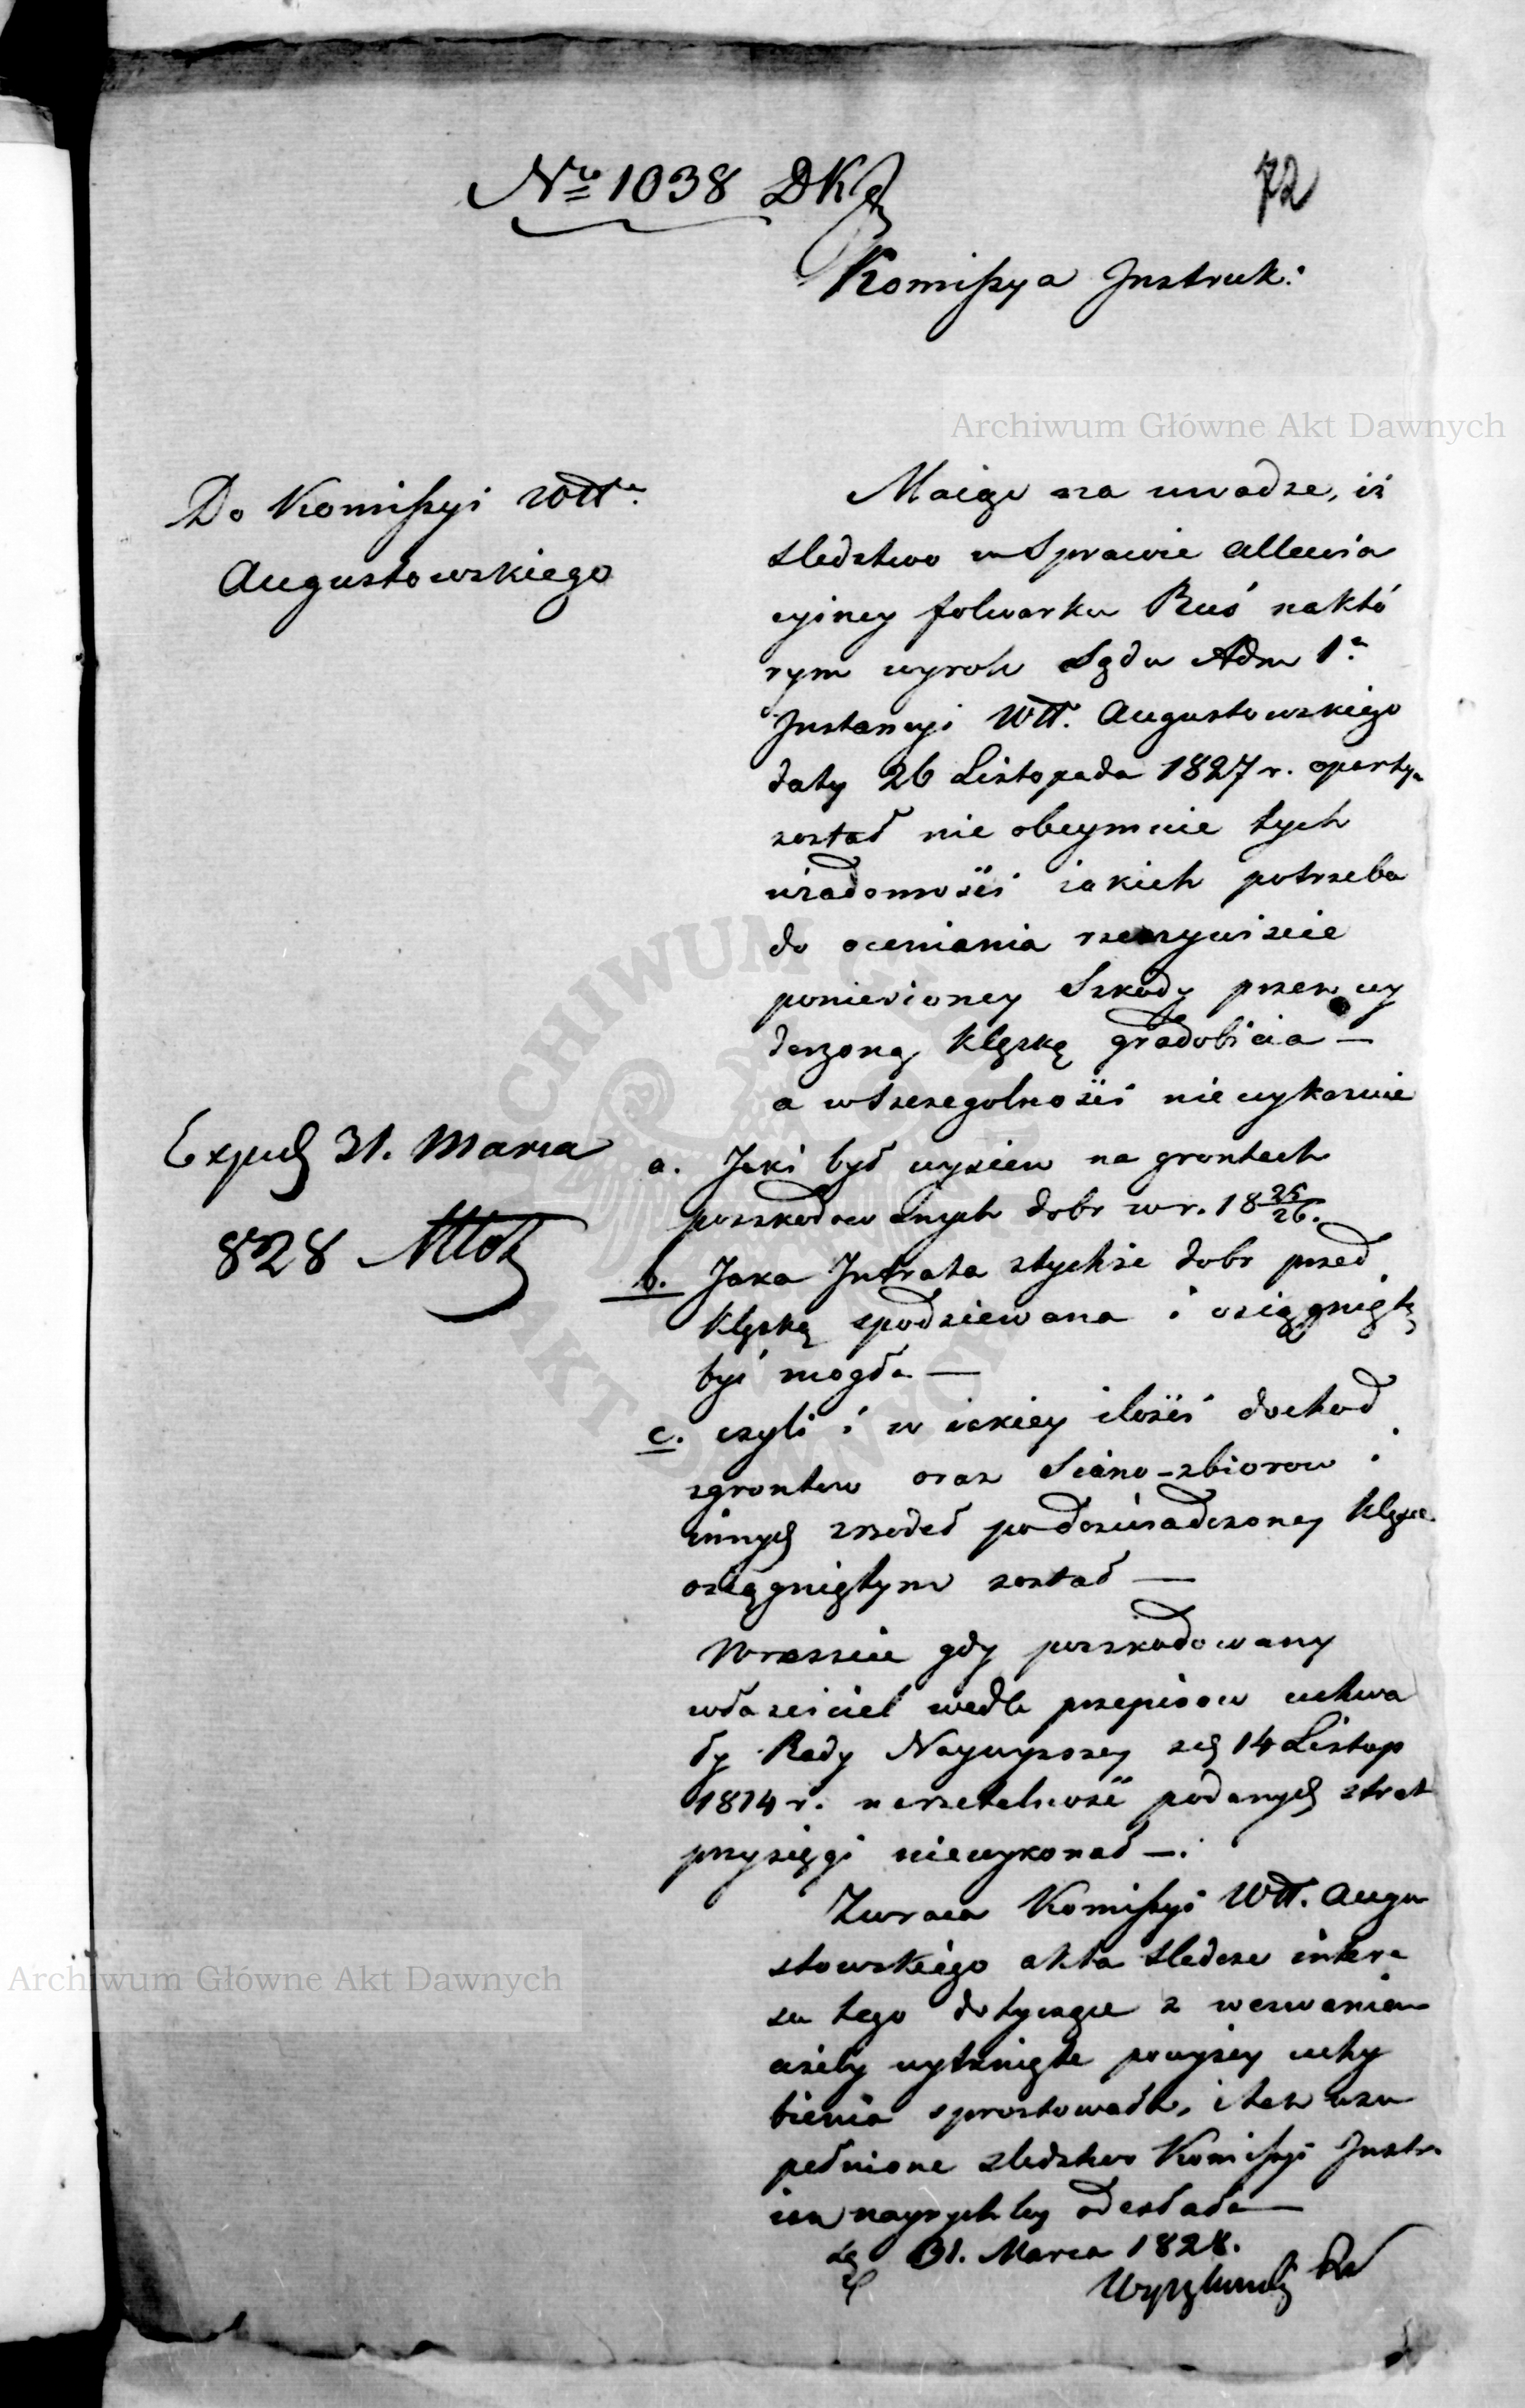 Nro 1038 DK
72
Komissya Instruk:
Archiwum Główne Akt Dawnych
Do Komissyi Wtt.
Augustowskiego
Maiąc na uwadze, iż
sledztwo w Sprawie allewia
cyiney folwarku Ruś naktó
rym wyrok Sądu Adm 1.
Instancyi Wtt. Augustowskiego
daty 26 Listopada 1827 r. oparty
został nie obeymuie tych
wiadomości iakich potrzeba
do oceniania rzeczywiscie
poniesioney Szkody przez wy
darzoną klęską gradobicia —
a wSzczegolności niewykazuie
Exped 31. Marca
828
a. Jaki był wysiew na grontach
poszkodowanych dobr w r. 18 25/26.
b. Jaka Intrata ztychże dobr przed
klęską spodziewana i osiągniętą
być mogła —
c. czyli i w iakiey ilości dochod
zgrontow oraz Siano-zbiorow i
innych zrzodeł podoswiadczoney klęsce
osiągniętym został —
Wreszcie gdy poszkodowany
własciciel wedle przepisow uchwa
ły Rady Naywyzszey z d 14 Listop
1814 r. na rzetelność podanych strat
przysięgi niewykonał —.
Zwraca Komissyi Wtt. Augu
stowskiego akta sledcze intere
su tego dotyczące z wezwaniem
ażeby wytknięte powyżey uchy
bienia sprostowała, i tak uzu
pełnione sledztwo Komissyi Instr.
iak nayrychley odesłała —
31. Marca 1828.
Archiwum Główne Akt Dawnych
ARCHIWUM GŁÓWNE AKT DAWNYCH